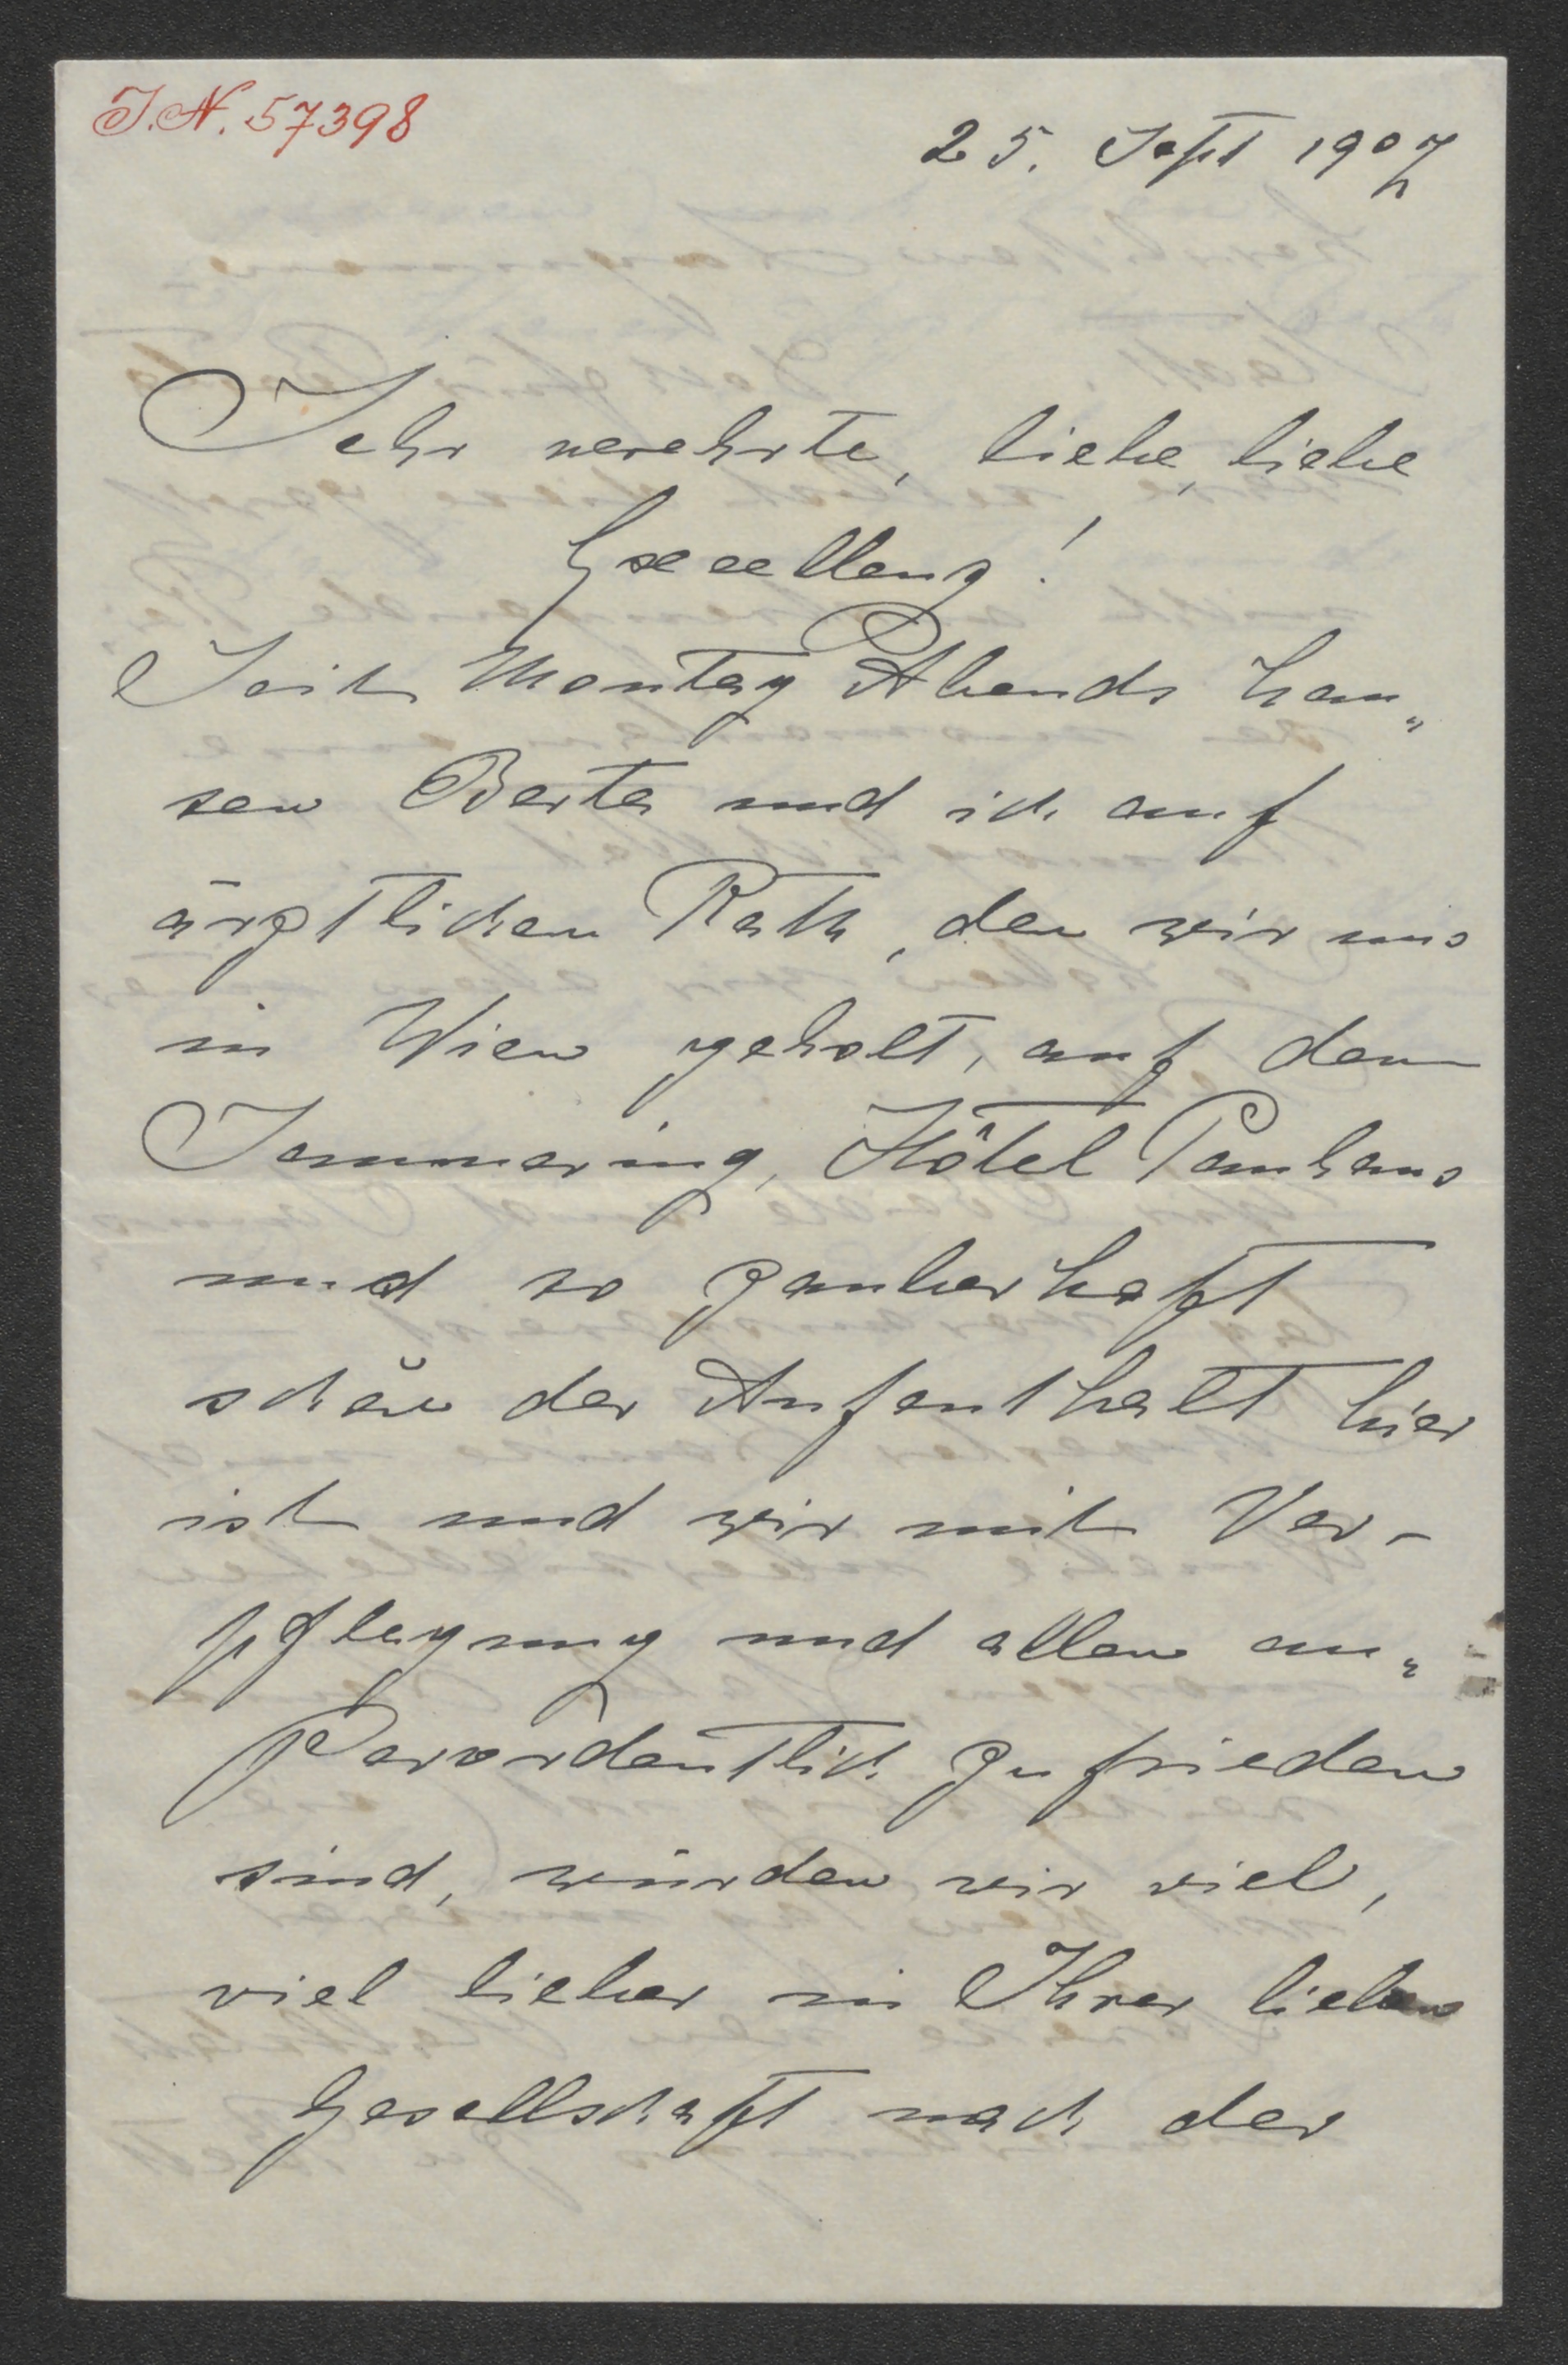 J.N. 57398
25. Sept 1907
Sehr verehrte, liebe, liebe
Excellenz!
Seit Montag Abends hau„
sen Berta und ich auf
ärztlichen Rath, den wir uns
in Wien geholt, auf dem
Semmering, Hôtel Panhans
und so zauberhaft
schön der Aufenthalt hier
ist und wir mit Ver-
pflegung und allem au„
ßerordentlich zufrieden
sind, würden wir viel,
viel lieber in Ihrer lieben
Gesellschaft nach der